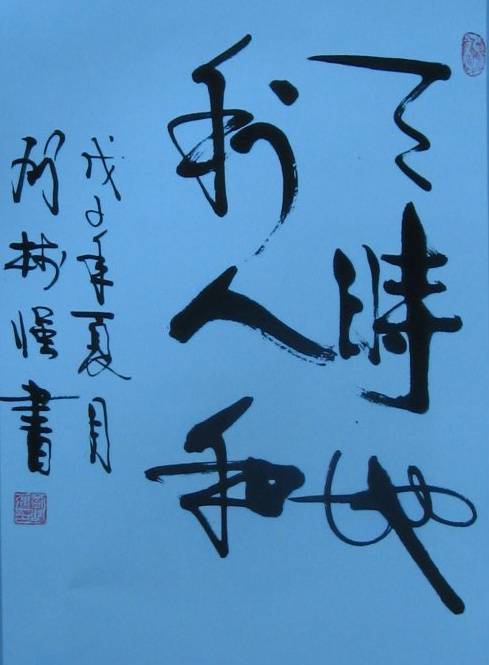 天時地
利人和
戊子年夏月
林惺書